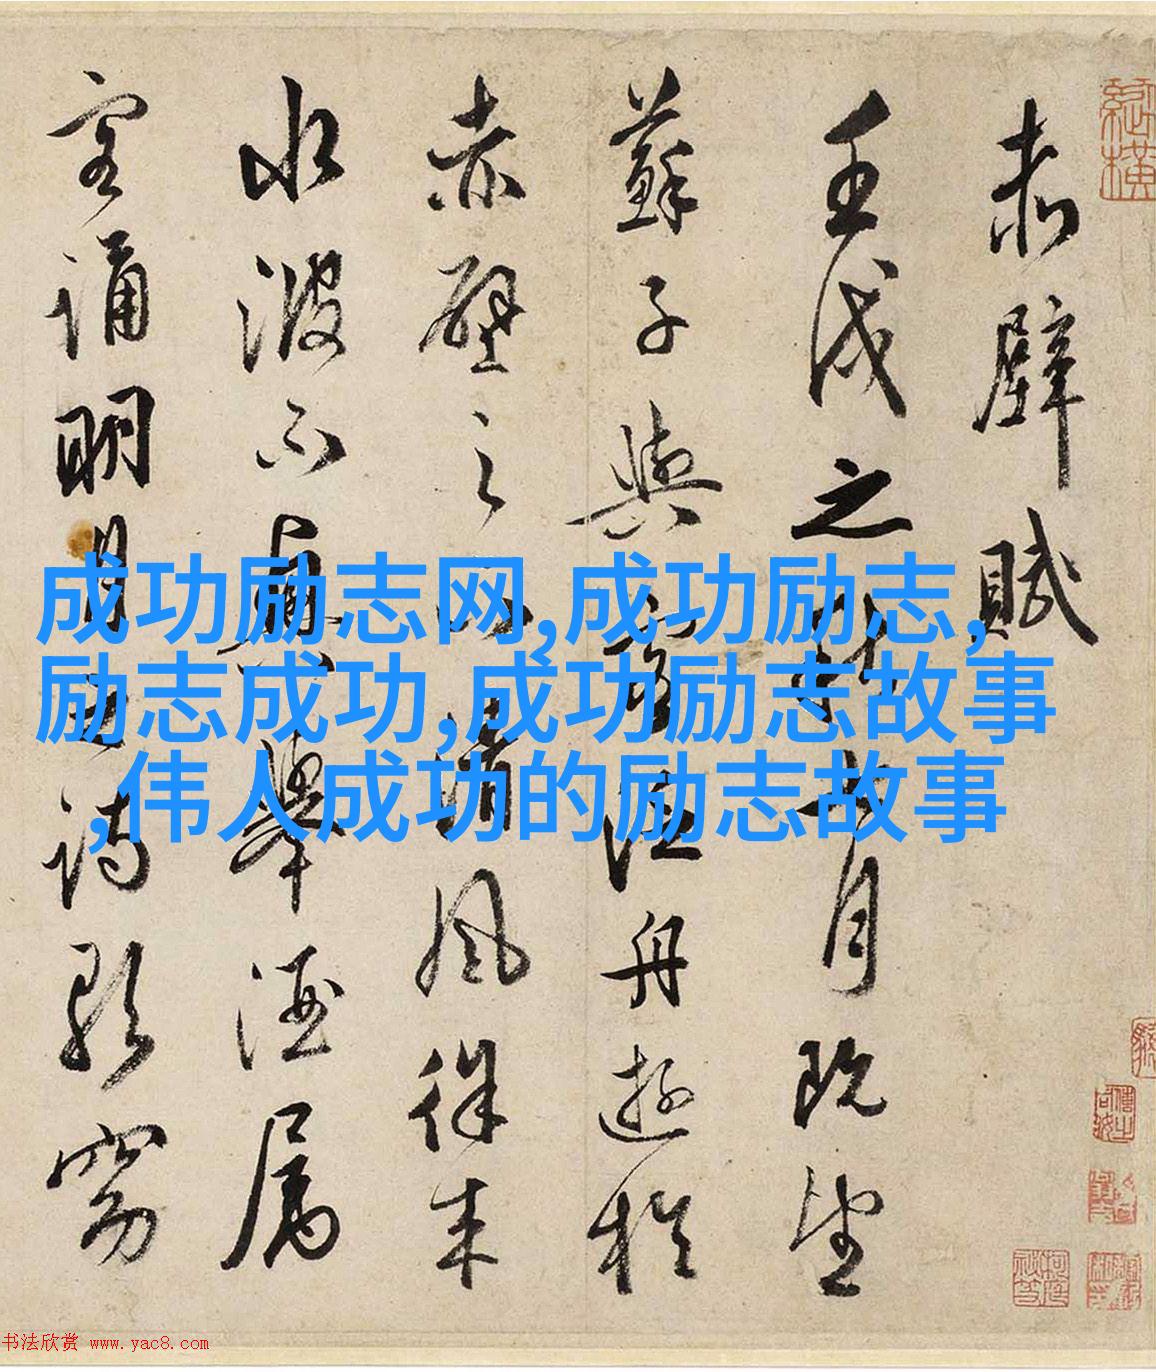 赤壁賦
壬戌之秋七月既望
蘇子與客泛舟遊於
赤壁之下清風徐来
水波不興舉酒屬
客誦明月之詩歌窈
成功励志网,成功励志,
励志成功,成功励志故事
,伟人成功的励志故事
书法欣赏 www.yac8.com